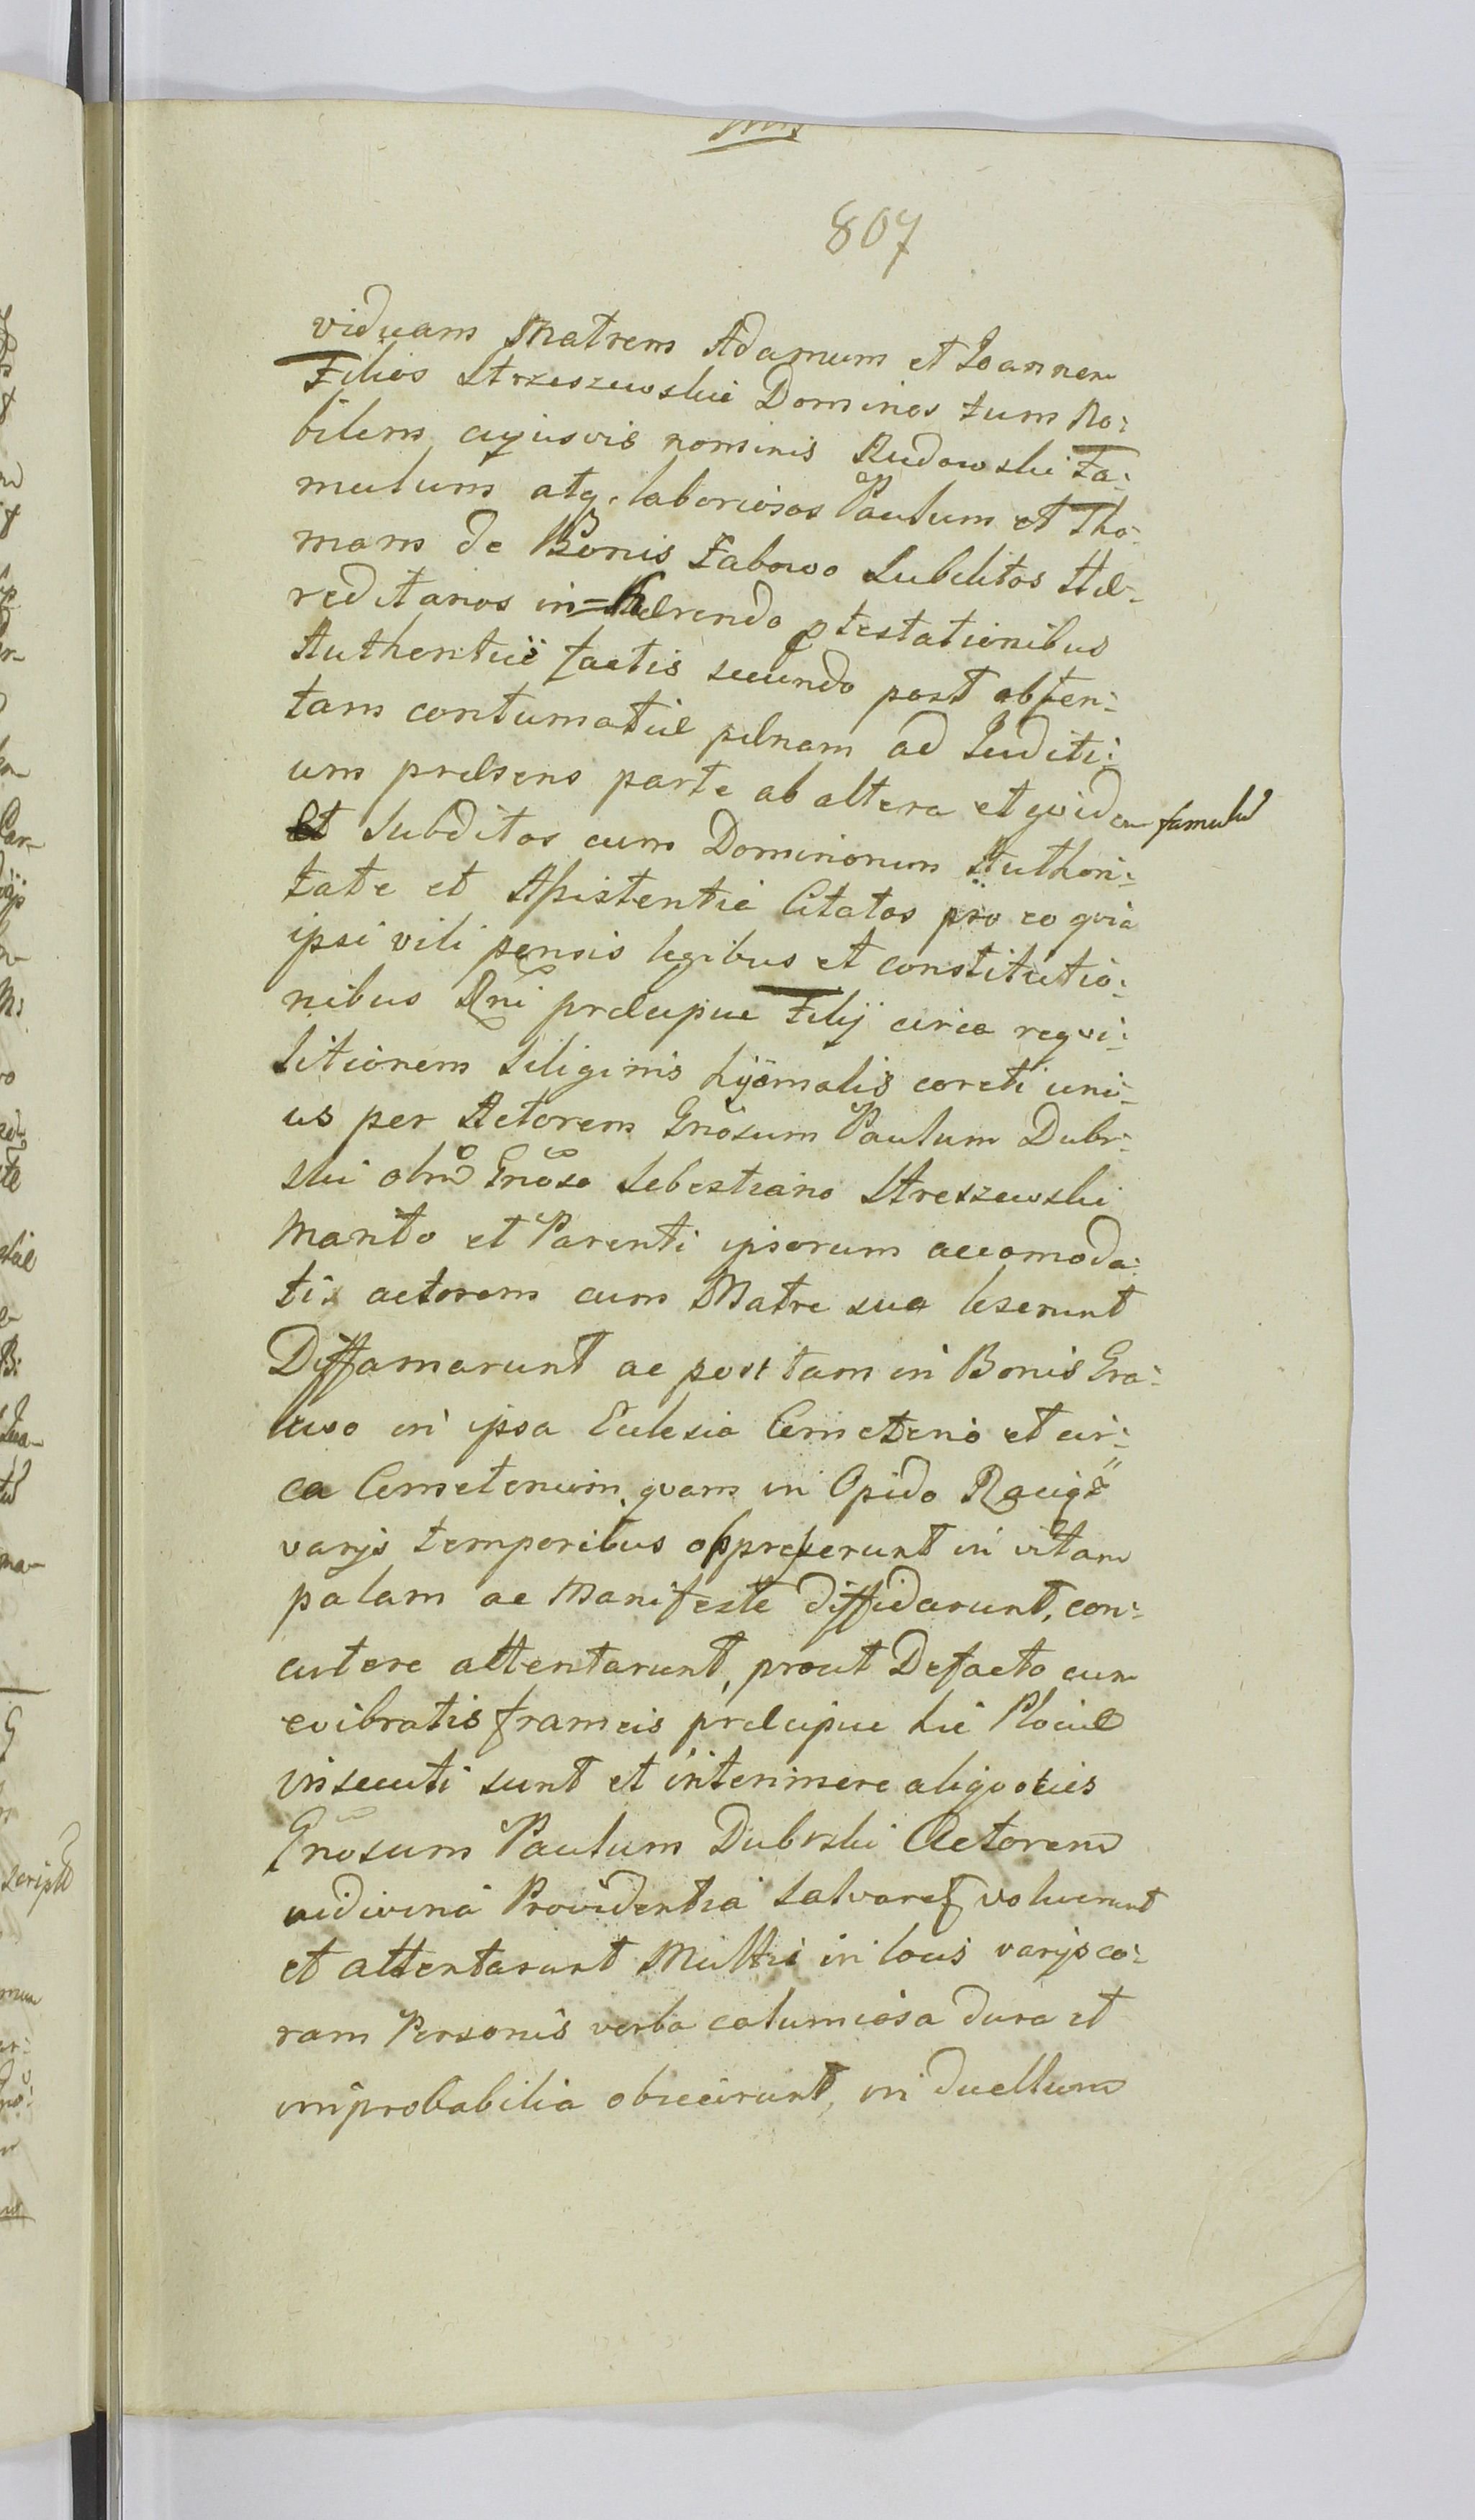 807
viduam Matrem Adamum et Joannem
Filios Strzeszewskie Dominos tum No:
bilem cujusvis nominis Rudowski Fa:
mulum atq. laboriosos Paulum et Tho:
mam de Bonis Łabowo Subditos Hæ:
reditarios in=hærendo ptestationibus
Authentice factis secundo post obten:
tam contumatiæ pænam ad Juditi:
um præsens parte ab altera et qvidem famulū
et Subditos cum Dominorum Authori:
tate et Assistentia Citatos pro eo qvia
ipsi vili pensis legibus et constitutio:
nibus Rni præcipue Filij circa reqvi:
sitionem Siliginis hyemalis coreti uni:
us per Actorem Gnosum Paulum Dubr:
ski olim Gnoso Sebestiano Streszewski
Marito et Parenti ipsorum accomoda:
ti actorem cum Matre sua leserunt
Diffamarunt ac post tam in Bonis Gra:
lewo in ipsa Eclesia Cemeterio et cir:
ca Cemeterium, qvam in Opido Raciąż
varijs temporibus oppresserunt in vitam
palam ac Manifeste diffidarunt, con:
cutere attentarunt, prout Defacto cum
evibratis frameis præcipue hic Plociæ
insecuti sunt et interimere aliqvoties
Gnosum Paulum Dubrski Actorem
ni divina Providentia salvaret voluerunt
et attentarunt Multis in locis varijs co:
ram Personis verba calumiosa dura et
improbabilia obiecirunt, in duellum